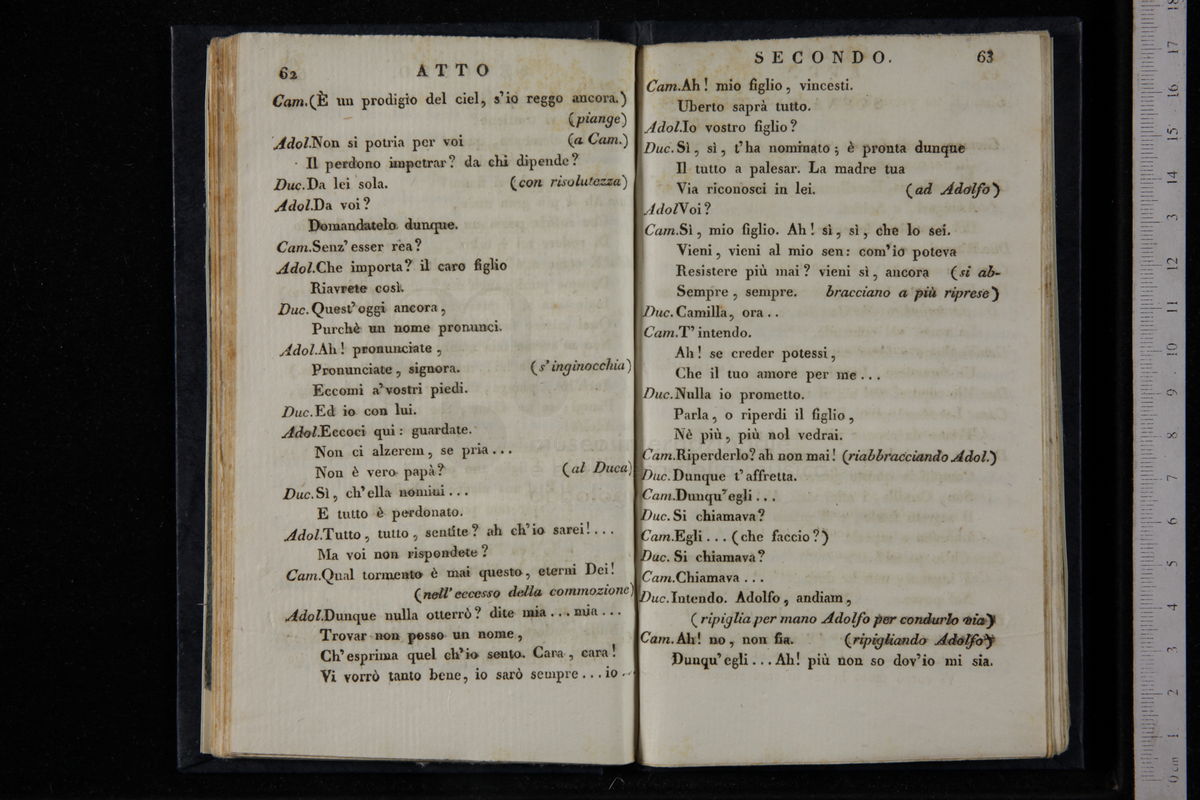 62 ATTO
Cam.(È un prodigio del ciel, s'io reggo ancora.)
(piange)
Adol.Non si potria per voi (a Cam.)
Il perdono impetrar? da chi dipende?
Duc.Da lei sola. (con risolutezza)
Adol.Da voi?
Domandatelo dunque.
Cam.Senz' esser rea?
Adol.Che importa? il caro figlio
Riavrete così.
Duc.Quest' oggi ancora,
Purchè un nome pronunci.
Adol.Ah! pronunciate,
Pronunciate, signora. (s' inginocchia)
Eccomi a' vostri piedi.
Duc.Ed io con lui.
Adol.Eccoci qui: guardate.
Non ci alzerem, se pria...
Non è vero papà? (al Duca)
Duc.Sì, ch' ella nomini...
E tutto è perdonato.
Adol.Tutto, tutto, sentite? ah ch' io sarei!....
Ma voi non rispondete?
Cam.Qual tormento è mai questo, eterni Dei!
(nell' eccesso della commozione)
Adol.Dunque nulla otterrò? dite mia...mia...
Trovar non posso un nome,
Ch' esprima quel ch' io sento. Cara, cara!
Vi vorrò tanto bene, io sarò sempre...io..
SECONDO. 63
Cam.Ah! mio figlio, vincesti.
Uberto saprà tutto.
Adol.Io vostro figlio?
Duc.Sì, sì, t' ha nominato; è pronta dunque
Il tutto a palesar. La madre tua
Via riconosci in lei. (ad Adolfo)
AdolVoi?
Cam.Sì, mio figlio. Ah! sì, sì, che lo sei.
Vieni, vieni al mio sen: com' io poteva
Resistere più mai? vieni sì, ancora (si ab-
Sempre, sempre. bracciano a più riprese)
Duc.Camilla, ora..
Cam.T' intendo.
Ah! se creder potessi,
Che il tuo amore per me...
Duc.Nulla io prometto.
Parla, o riperdi il figlio,
Nè più, più nol vedrai.
Cam.Riperderlo? ah non mai! (riabbracciando Adol.)
Duc.Dunque t' affretta.
Cam.Dunqu' egli...
Duc.Si chiamava?
Cam.Egli...(che faccio?)
Duc.Si chiamava?
Cam.Chiamava...
Duc.Intendo. Adolfo, andiam,
(ripiglia per mano Adolfo per condurlo via)
Cam.Ah! no, non fia. (ripigliando Adolfo)
Dunqu' egli...Ah! più non so dov' io mi sia.